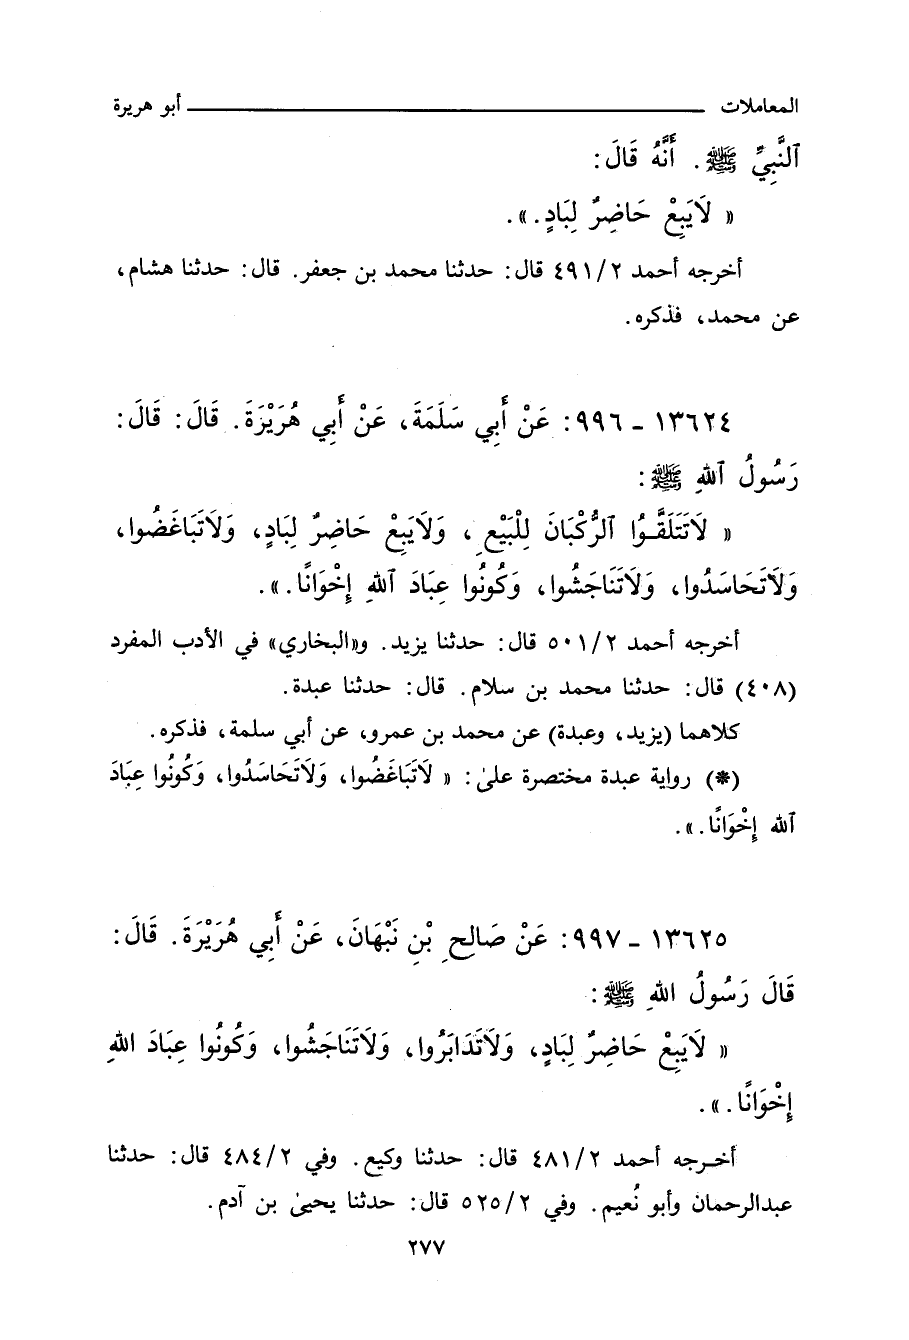 المعاملات ــــــــــــ أبو هريرة
ٱلنَّبِيِّ ﷺ. أَنَّهُ قَالَ:
« لَايَبِعْ حَاضِرٌ لِبَادٍ.».
أخرجه أحمد ٤٩١/٢ قال: حدثنا محمد بن جعفر. قال: حدثنا هشام،
عن محمد، فذكره.
١٣٦٢٤ - ٩٩٦: عَنْ أَبِي سَلَمَةَ، عَنْ أَبِي هُرَيْرَةَ. قَالَ: قَالَ:
رَسُولُ ٱللهِ ﷺ:
« لَاتَتَلَقَّوُا ٱلرُّكْبَانَ لِلْبَيْعِ، وَلَايَبِعْ حَاضِرٌ لِبَادٍ، وَلَاتَبَاغَضُوا،
وَلَاتَحَاسَدُوا، وَلَاتَنَاجَشُوا، وَكُونُوا عِبَادَ ٱللهِ إِخْوَانًا.».
أخرجه أحمد ٥٠١/٢ قال: حدثنا يزيد. و«البخاري» في الأدب المفرد
(٤٠٨) قال: حدثنا محمد بن سلام. قال: حدثنا عبدة.
كلاهما (يزيد، وعبدة) عن محمد بن عمرو، عن أبي سلمة، فذكره.
(*) رواية عبدة مختصرة علىٰ: « لَاتَبَاغَضُوا، وَلَاتَحَاسَدُوا، وَكُونُوا عِبَادَ
ٱلله إِخْوَانًا.».
١٣٦٢٥ - ٩٩٧: عَنْ صَالِحِ بْنِ نَبْهَانَ، عَنْ أَبِي هُرَيْرَةَ. قَالَ:
قَالَ رَسُولُ اللهِ ﷺ:
« لَايَبِعْ حَاضِرٌ لِبَادٍ، وَلَاتَدَابَرُوا، وَلَاتَنَاجَشُوا، وَكُونُوا عِبَادَ اللهِ
إِخْوَانًا.».
أخرجه أحمد ٤٨١/٢ قال: حدثنا وكيع. وفي ٤٨٤/٢ قال: حدثنا
عبدالرحمان وأبو نُعيم. وفي ٥٢٥/٢ قال: حدثنا يحيىٰ بن آدم.
٢٧٧